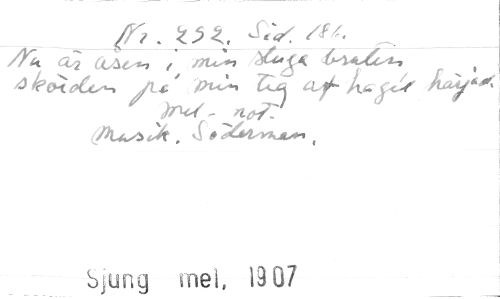 Nr. 292. Sid. 181.
Nu är åsen i min stuga brusten
skörden på min teg af hagel härjad.
mel - not.
Musik. Söderman.
Sjung mel, 1907